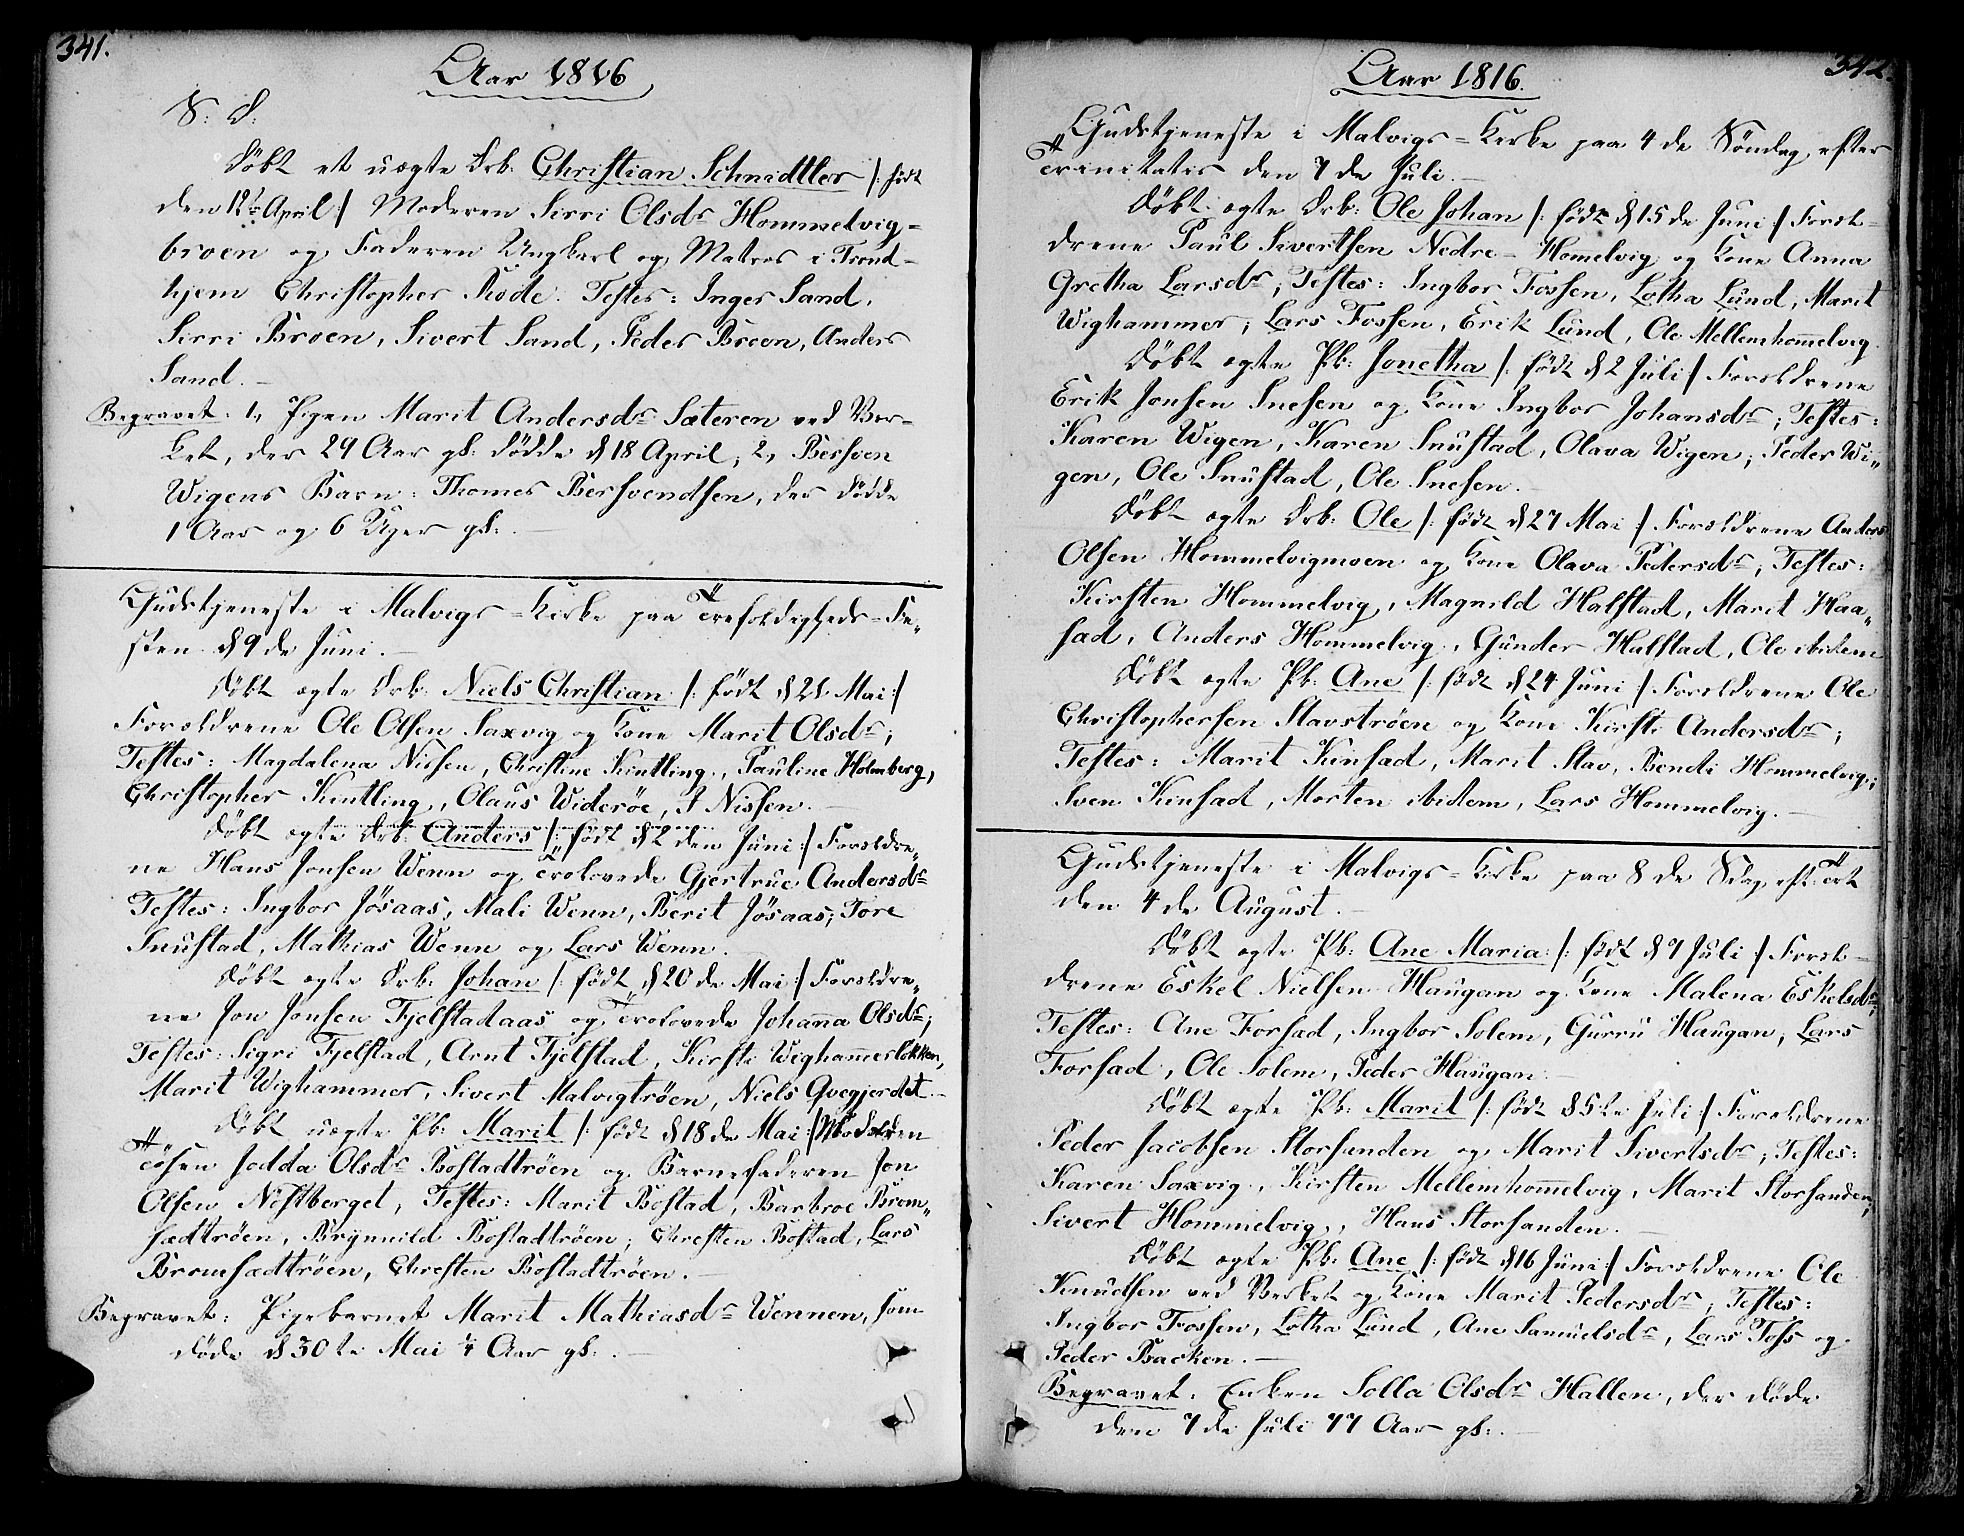 341.
Aar 1816
S: D:
Döbt et uægte Drb. Christian Schmidtler /: födt
den 12te April :/ Moderen Sirri Olsdr Hommelvig-
broen og Faderen Ungkarl og Matros i Trond-
hjem Christopher Rode. Testes: Inger Sand,
Sirri Broen, Sivert Sand, Peder Broen, Anders
Sand.
Begravet: 1, Pigen Marit Andersdr Sæteren ved Ver-
ket, der 29 Aar gl: dödde d 18 April; 2,
Wigens Barn: Thomes Bersvendsen, der dödde
1 Aar og 6 Uger gl:.
Gudstjeneste i Malvigs-Kirke paa Trefoldigheds-Fe-
sten d 9 de Juni.
Döbt ægte Drb. Niels Christian /: födt d 21 Mai :/
Forældrene Ole Olsen Saxvig og Kone Marit Olsdr;
Testes: Magdalena Nissen, Christine Kintling, Pauline Holmberg,
Christopher Kintling, Olaus Wideröe, J Nissen.
Döbt ægte Drb. Anders /: födt d 2 den Juni :/ Forældre-
ne Hans Jonsen Wenn og Trolovede Gjertrue Andersdr
Testes: Ingbor Jösaas, Mali Wenn, Berit Jösaas; Tore
Snustad, Mathias Wenn og Lars Wenn.
Döbt ægte Drb. Johan /: födt d 20 de Mai :/ Forældre-
ne Jon Jonsen Fjelstadaas og Trolovede Johanna Olsdr;
Testes: Sigri Fjelstad, Arnt Fjelstad, Kirsti Wighammerlökken,
Marit Wighammer, Sivert Malvigtröen, Niels Qvegjerdet.
Döbt uægte Pb. Marit /: födt d 18 de Mai :/ Moderen
Tösen Jodda Olsdr Bostadtröen og Barnefaderen Jon
Olsen Nistberget, Testes: Marit Bostad, Barbroe Brom-
sædtröen, Brynnild Bostadtröen; Chresten Bostad, Lars
Bromsædtröen, Chresten Bostadtröen.
Begravet: Pigebarnet Marit Mathiasdr Wennen, som
döde d 30 te Mai 4 Aar gl:.
342.
Aar 1816.
Gudstjeneste i Malvigs-Kirke paa 4 de Söndag efter
Trinitatis den 7 de Juli.
Döbt ægte Drb: Ole Johan /: födt d 15 de Juni :/ Foræl-
drene Paul Sivertsen Nedre-Homelvig og Kone Anna
Gretha Larsdr; Testes: Ingbor Fossen, Lotha Lund, Marit
Wighammer; Lars Fossen, Erik Lund, Ole Mellemhomelvig.
Döbt ægte Pb: Jonetha /: födt d 2 Juli :/ Forældrene
Erik Jonsen Snesen og Kone Ingbor Johansdr; Testes:
Karen Wigen, Karen Snustad, Olava Wigen; Peder Wi-
gen, Ole Snustad, Ole Snesen.
Döbt ægte Drb: Ole /: födt d 27 Mai :/ Forældrene Anders
Olsen Hommelvigmoen og Kone Olava Pedersdr; Testes:
Kirsten Hommelvig, Magnild Halstad, Marit Haa-
sad, Anders Hommelvig, Gunder Halstad, Ole ibidem
Döbt ægte Pb: Ane /: födt d 24 Juni :/ Forældrene Ole
Christophersen Stavströen og Kone Kirsti Andersdr;
Testes: Marit Kinsad, Marit Stav, Bendi Hommelvig;
Sven Kinsad, Morten ibidem, Lars Hommelvig.
Gudstjeneste i Malvigs-Kirke paa 8 de Sdag eft: Trt
den 4 de August.
Döbt ægte Pb: Ane Maria /: födt d 7 Juli :/ Foræl-
drene Eskel Nielsen Haugan og Kone Malena Eskelsdr;
Testes: Ane Forsad, Ingbor Solem, Gurru Haugan, Lars
Forsad, Ole Solem, Peder Haugan.
Döbt ægte Pb. Marit /: födt d 5 te Juli :/ Forældrene
Peder Jacobsen Storsanden og Marit Sivertsdr; Testes:
Karen Saxvig, Kirsten Mellemhomelvig, Marit Storsanden,
Sivert Hommelvig, Hans Storsanden.
Döbt ægte Pb. Ane /: födt d 16 Juni :/ Forældrene Ole
Knudsen ved Verket og Kone Marit Pedersdr; Testes:
Ingbor Fossen, Lotha Lund, Ane Samuelsdr, Lars Foss og
Peder Backen.
Begravet: Enken Solla Olsdr Hallen, der döde
den 7 de Juli 77 Aar gl:.